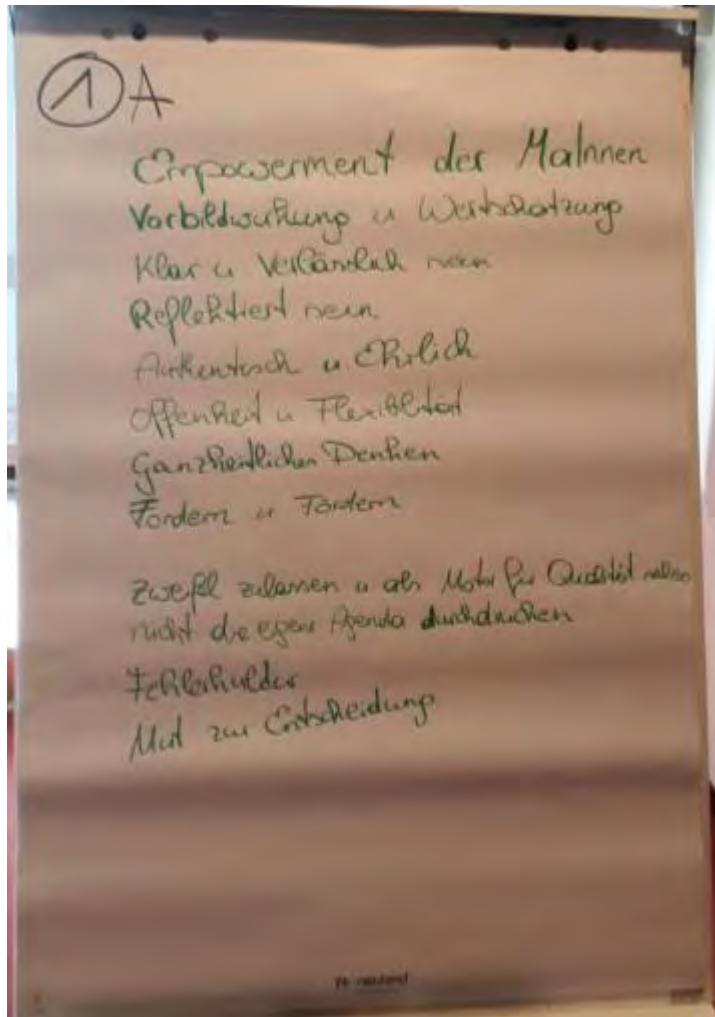 1 A
Empowerment der MaInnen
Vorbildwirkung u Wertschätzung
Klar u Verlässlich sein
Reflektiert sein
Authentisch u Ehrlich
Offenheit u Flexibilität
Ganzheitliches Denken
Fordern u Fördern
Zweifel zulassen u als Motor für Qualität sehen
nicht die eigene Agenda durchdrücken
Fehlerkultur
Mut zur Entscheidung
neuland